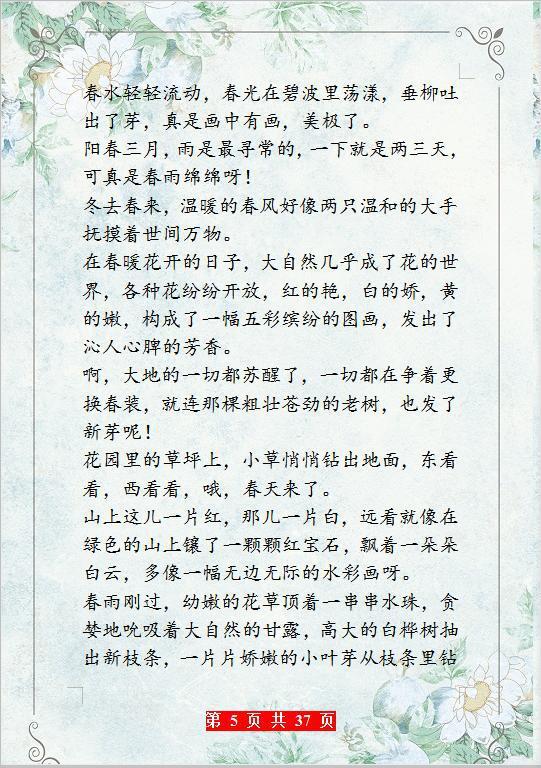 春水轻轻流动，春光在碧波里荡漾，垂柳吐
出了芽，真是画中有画，美极了。
阳春三月，雨是最寻常的，一下就是两三天，
可真是春雨绵绵呀！
冬去春来，温暖的春风好像两只温和的大手
抚摸着世间万物。
在春暖花开的日子，大自然几乎成了花的世
界，各种花纷纷开放，红的艳，白的娇，黄
的嫩，构成了一幅五彩缤纷的图画，发出了
沁人心脾的芳香。
啊，大地的一切都苏醒了，一切都在争着更
换春装，就连那棵粗壮苍劲的老树，也发了
新芽呢！
花园里的草坪上，小草悄悄钻出地面，东看
看，西看看，哦，春天来了。
山上这儿一片红，那儿一片白，远看就像在
绿色的山上镶了一颗颗红宝石，飘着一朵朵
白云，多像一幅无边无际的水彩画呀。
春雨刚过，幼嫩的花草顶着一串串水珠，贪
婪地吮吸着大自然的甘露，高大的白桦树抽
出新枝条，一片片娇嫩的小叶芽从枝条里钻
第 5 页 共 37 页